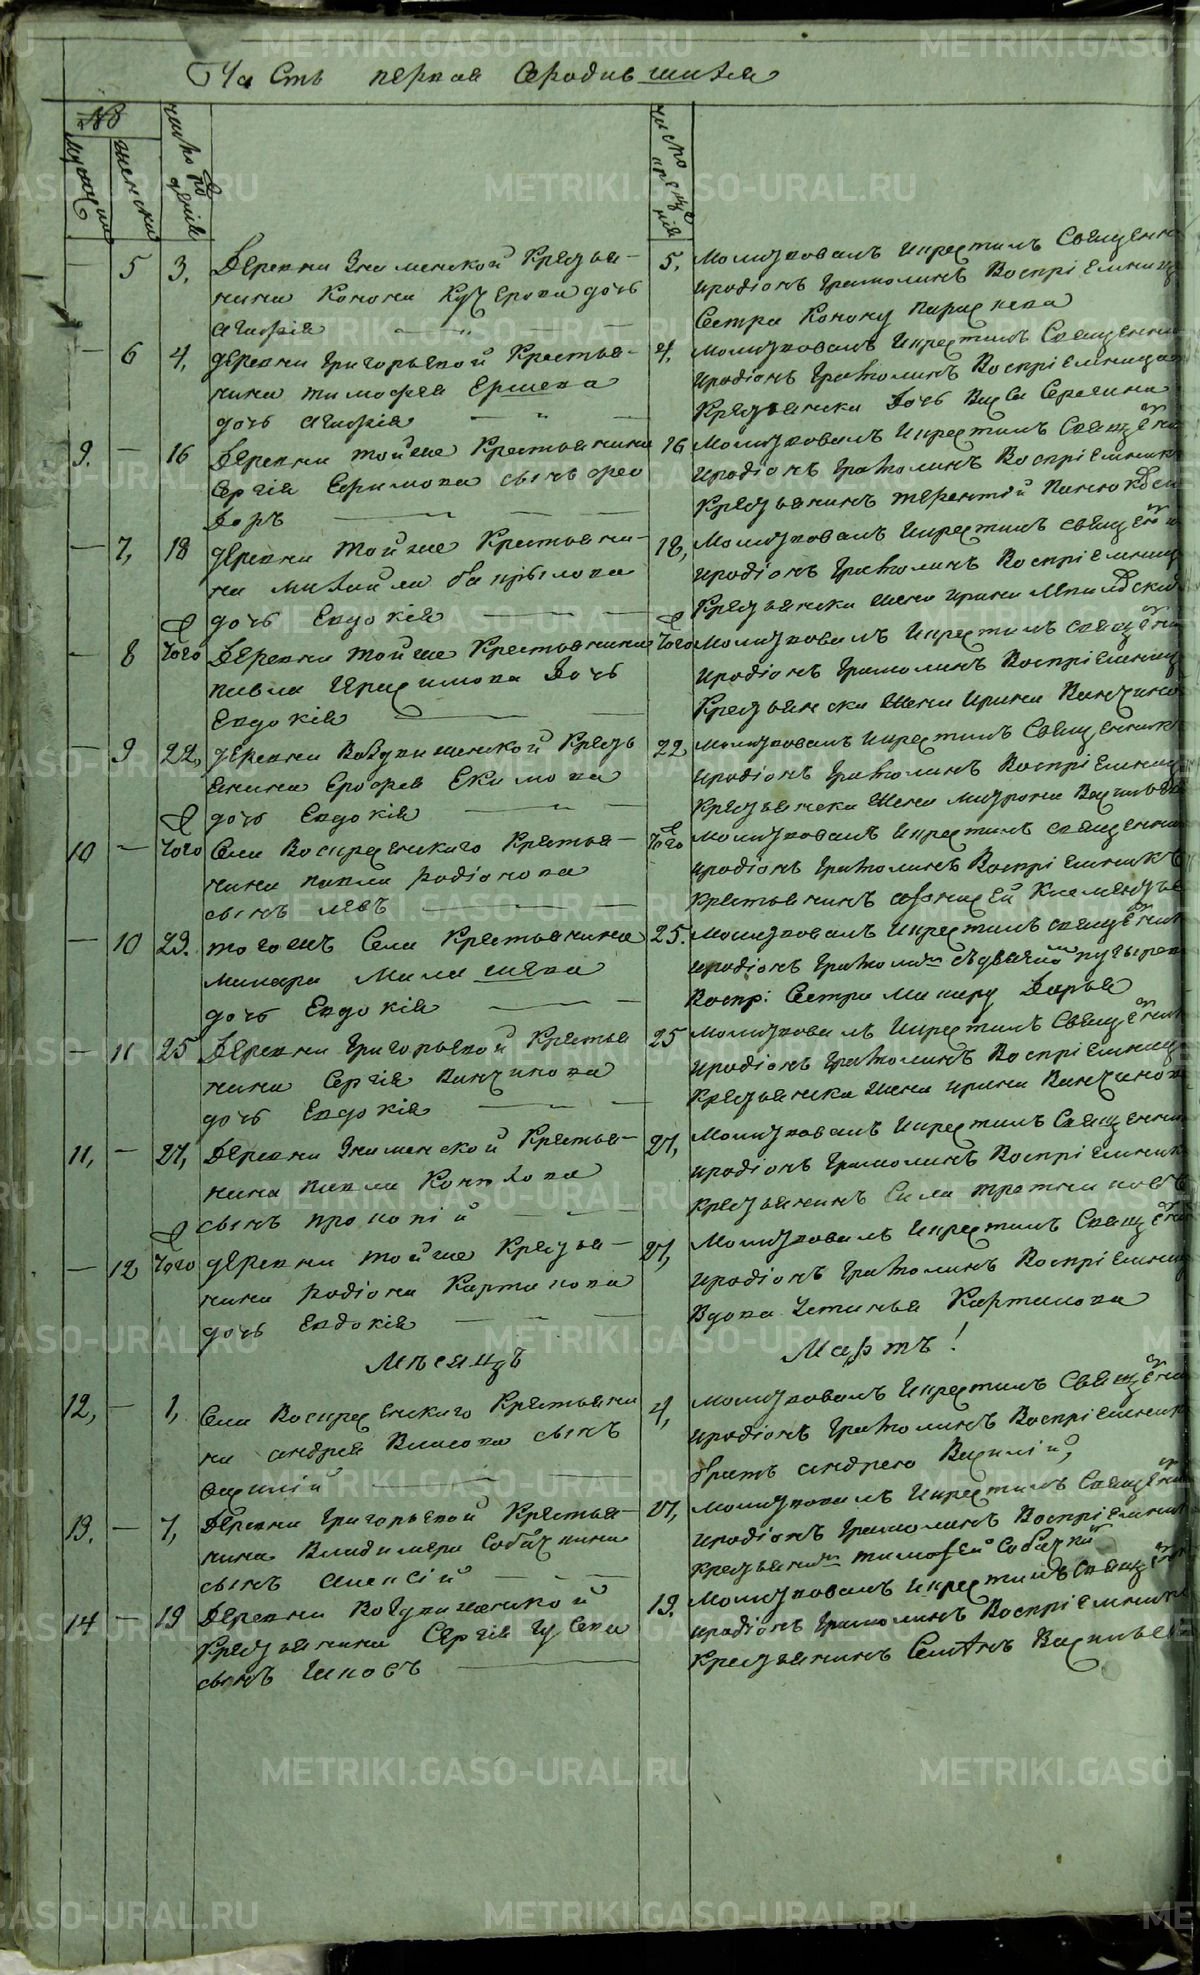 Часть первая о родившихся
№
мужеска
женска
число рождения
число крещения
5 3, Деревни Знаменской Крестья-
нина Конона Кучерова дочь
Агафія
5. Молитвовалъ и крестилъ Священни
Иродіонъ Грамолинъ Воспріемница
Сестра Конону Параскева
6 4, деревни Григорьевой Крестья-
нина Тимофея Ершева
дочь Агафія
4, Молитвовалъ и крестилъ Священни
Иродіонъ Грамолинъ Воспріемница
Крестьянска Дочь
9. 16 Деревни той же Крестьянина
Сергія Ефимова сынъ Фео
доръ
16 Молитвовалъ и крестилъ Священни
Иродіонъ Грамолинъ Воспріемникъ
Крестьянинъ Терентій
7, 18 деревни той же Крестьяни-
на Михайла Гаврилова
дочь Евдокія
18, Молитвовалъ и крестилъ священни
Иродіонъ Грамолинъ Воспріемница
Крестьянска жена Ирина
8 Того Деревни той же Крестьянина
Павла Герасимова Дочь
Евдокія
Того Молитвовалъ и крестилъ священни
Иродіонъ Грамолинъ Воспріемница
Крестьянска Жена Ирина
9 22, деревни Воздвиженской Кресть
янина Ерофея Екимова
дочь Евдокія
22, Молитвовалъ и крестилъ Священникъ
Иродіонъ Грамолинъ Воспріемница
Крестьянска Жена Матрона Васильева
10 Того Села Воскресенскаго Крестья-
нина Павла Родіонова
сынъ Левъ
Того Молитвовалъ и крестилъ священни
Иродіонъ Грамолинъ Воспріемникъ
Крестьянинъ
10 23. того жъ Села Крестьянина
Макара
дочь Евдокія
25. Молитвовалъ и крестилъ священни
Иродіонъ Грамолинъ
Воспр: Сестра Макару Дарья
11 25 Деревни Григорьевой Крестья
нина Сергія
дочь Евдокія
25 Молитвовалъ и крестилъ Священни
Иродіонъ Грамолинъ Воспріемница
Крестьянска Жена Ирина
11, 27, Деревни Знаменской Крестья-
нина Павла Конюхова
сынъ Прокопій
27, Молитвовалъ и крестилъ Священни
Иродіонъ Грамолинъ Воспріемник
Крестьянинъ Сила
12 Того деревни той же Крестья-
нина Родіона Картапова
дочь Евдокія
27, Молитвовалъ и крестилъ Священни
Иродіонъ Грамолинъ Воспріемница
Вдова Устинья Картапова
Месяцъ Мартъ!
12, 1, Села Воскресенскаго Крестьяни
на Андрея Власова сынъ
Василій
4, Молитвовалъ и крестилъ Священни
Иродіонъ Грамолинъ Воспріемник
братъ Андрею Василій,
13. 7, Деревни Григорьевой Крестья-
нина Владимера Собачкина
сынъ Алексій
Молитвовалъ и крестилъ Священни
Иродіонъ Грамолинъ Воспріемник
Крестьянинъ Тимофей
14 19 Деревни Воздвиженской
Крестьянина Сергія Гусева
сынъ Іаковъ
19. Молитвовалъ и крестилъ Священни
Иродіонъ Грамолинъ Воспріемник
Крестьянинъ Семенъ Васильев
METRIKI.GASO-URAL.RU